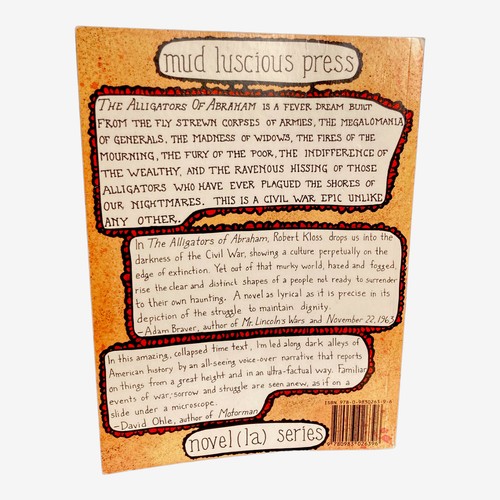 mud luscious press
THE ALLIGATORS OF ABRAHAM IS A FEVER DREAM BUILT
FROM THE FLY STREWN CORPSES OF ARMIES, THE MEGALOMANIA
OF GENERALS, THE MADNESS OF WIDOWS, THE FIRES OF THE
MOURNING, THE FURY OF THE POOR, THE INDIFFERENCE OF
THE WEALTHY, AND THE RAVENOUS HISSING OF THOSE
ALLIGATORS WHO HAVE EVER PLAGUED THE SHORES OF
OUR NIGHTMARES. THIS IS A CIVIL WAR EPIC UNLIKE
ANY OTHER.
In The Alligators of Abraham, Robert Kloss drops us into the
darkness of the Civil War, showing a culture perpetually on the
edge of extinction. Yet out of that murky world, hazed and fogged,
rise the clear and distinct shapes of a people not ready to surrender
to their own haunting. A novel as lyrical as it is precise in its
depiction of the struggle to maintain dignity.
-Adam Braver, author of Mr. Lincoln's Wars and November 22, 1963
In this amazing, collapsed time text, I'm led along dark alleys of
American history by an all-seeing voice-over narrative that reports
on things from a great height and in an ultra-factual way. Familiar
events of war, sorrow and struggle are seen anew, as if on a
slide under a microscope.
-David Ohle, author of Motorman
ISBN 978-0-9830263-9-6
9 780983 026396
novel(la) series